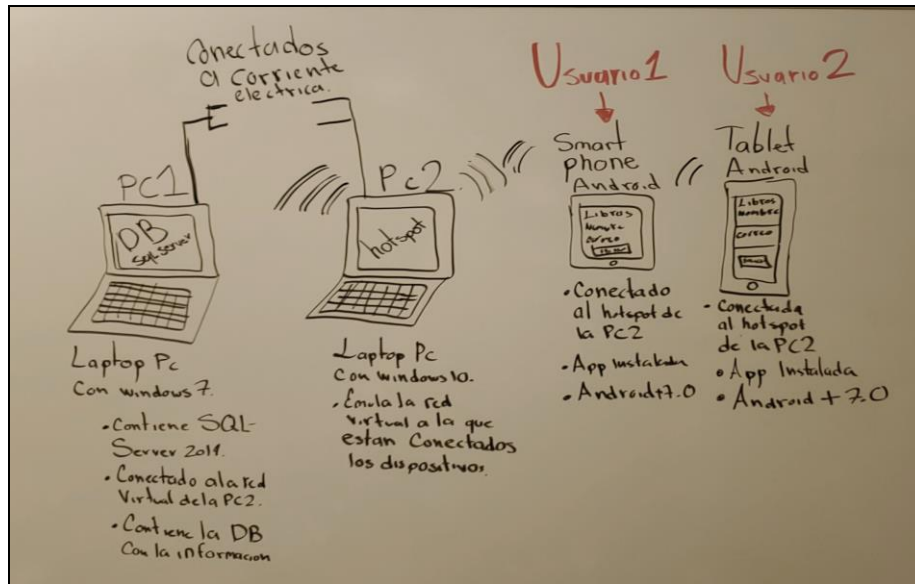 Conectados
a corriente
electrica.
PC1
DB
SQL server
Laptop Pc
Con windows 7.
• Contiene SQL-
Server 2011.
• Conectado a la red
Virtual de la PC2.
• Contiene la DB
Con la informacion
Pc2
hotspot
Laptop Pc
Con windows 10.
• Emula la red
virtual a la que
estan Conectados
los dispositivos.
Usuario 1
Smart
phone
Android
Libros
Nombre
correo
• Conectado
al hotspot de
la PC2
• App Instalada
• Android +7.0
Usuario 2
Tablet
Android
Libros
Nombre
correo
• Conectada
al hotspot
de la PC2
• App Instalada
• Android + 7.0